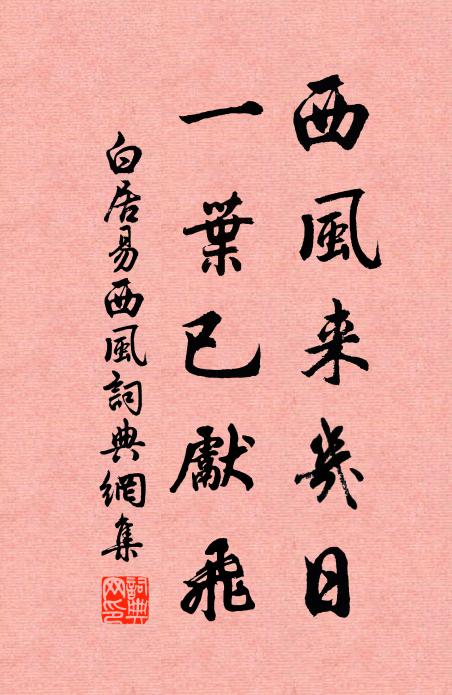 西風来幾日
一葉已獻飛
白居易西風詞典網集
詞典网印